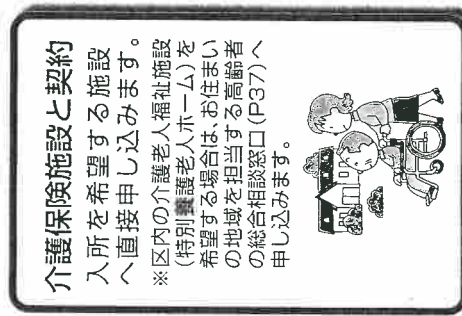 介護保険施設と契約
入所を希望する施設
へ直接申し込みます。
※区内の介護老人福祉施設
(特別養護老人ホーム)を
希望する場合は、お住まい
の地域を担当する高齢者
の総合相談窓口(P37)へ
申し込みます。